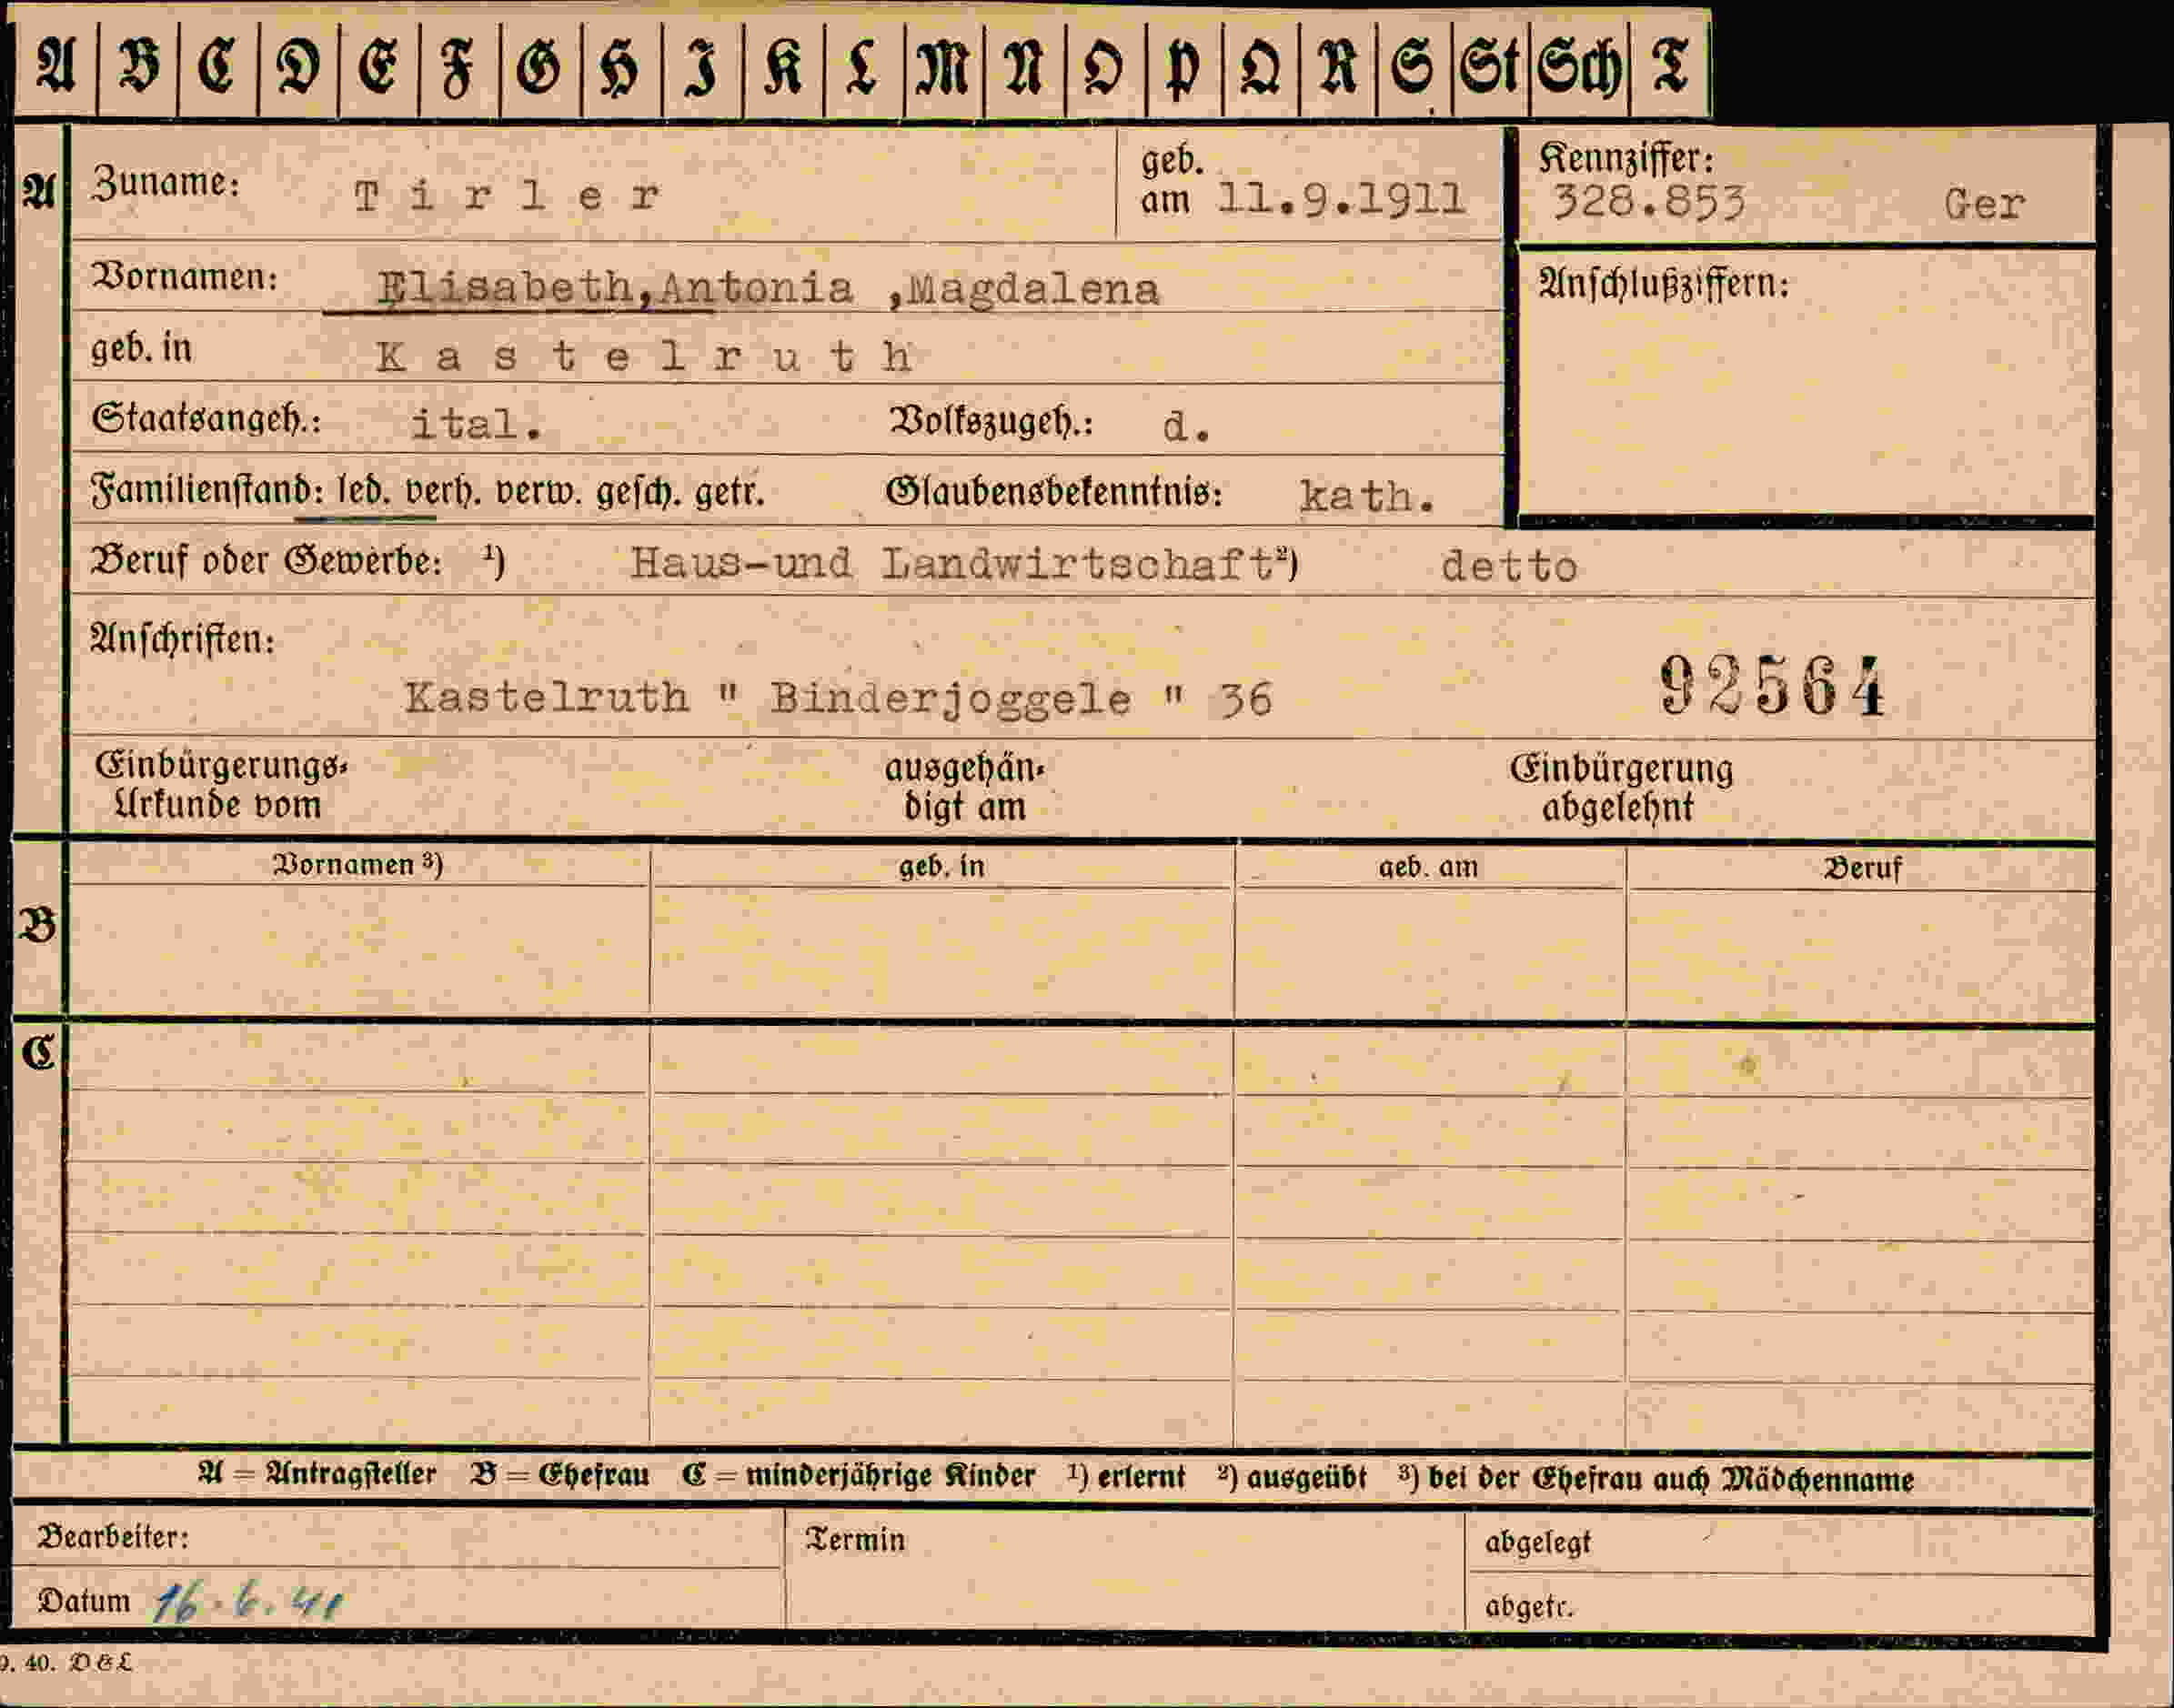 A B C D E F G H I K L M N O P Q R S St Sch T
A Zuname: Tirler geb. am 11.9.1911 Kennziffer: 328.853 Ger
Vornamen: Elisabeth,Antonia ,Magdalena Anschlußziffern:
geb. in Kastelruth
Staatsangeh.: ital. Volkszugeh.: d.
Familienstand: led. verh. verw. gesch. getr. Glaubensbekenntnis: kath.
Beruf oder Gewerbe: ¹) Haus-und Landwirtschaft ²) detto
Anschriften:
Kastelruth " Binderjoggele " 36 92564
Einbürgerungs- ausgehän- Einbürgerung
Urkunde vom digt am abgelehnt
Vornamen ³) geb. in geb. am Beruf
B
C
A = Antragsteller B = Ehefrau C = minderjährige Kinder ¹) erlernt ²) ausgeübt ³) bei der Ehefrau auch Mädchenname
Bearbeiter: Termin abgelegt
Datum 16.6.41 abgetr.
40. D & L